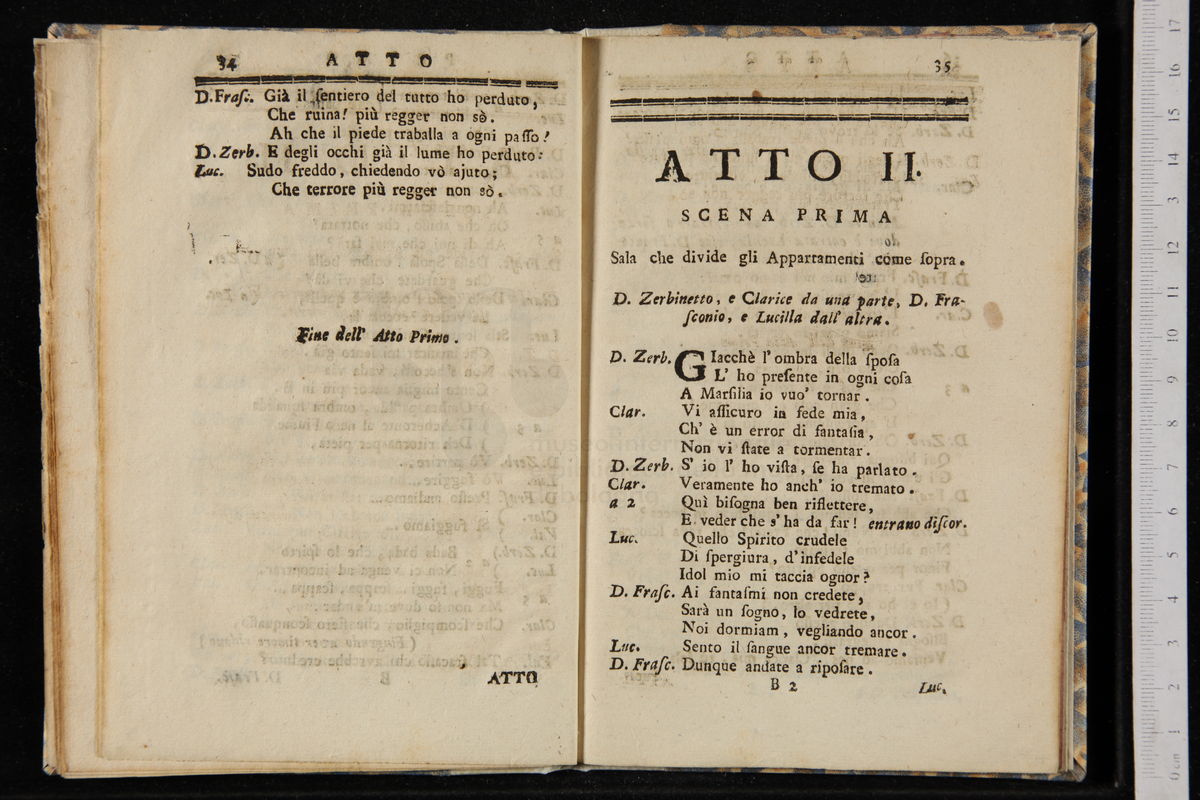 34 ATTO
D. Fraſc. Già il ſentiero del tutto ho perduto,
Che ruina! più regger non sò.
Ah che il piede traballa a ogni paſſo!
D. Zerb. E degli occhi già il lume ho perduto:
Luc. Sudo freddo, chiedendo vò ajuto;
Che terrore più regger non sò.
Fine dell' Atto Primo.
ATTO
35
ATTO II.
SCENA PRIMA
Sala che divide gli Appartamenti come ſopra.
D. Zerbinetto, e Clarice da una parte, D. Fra-
ſconio, e Lucilla dall' altra.
D. Zerb. GIacchè l' ombra della ſpoſa
L' ho preſente in ogni coſa
A Marſilia io vuo' tornar.
Clar. Vi aſſicuro in fede mia,
Ch' è un error di fantaſia,
Non vi ſtate a tormentar.
D. Zerb. S' io l' ho viſta, ſe ha parlato.
Clar. Veramente ho anch' io tremato.
a 2 Quì biſogna ben riflettere,
E veder che s' ha da far! entrano diſcor.
Luc. Quello Spirito crudele
Di ſpergiura, d' infedele
Idol mio mi taccia ognor?
D. Fraſc. Ai fantaſmi non credete,
Sarà un ſogno, lo vedrete,
Noi dormiam, vegliando ancor.
Luc. Sento il ſangue ancor tremare.
D. Fraſc. Dunque andate a ripoſare.
B 2 Luc.